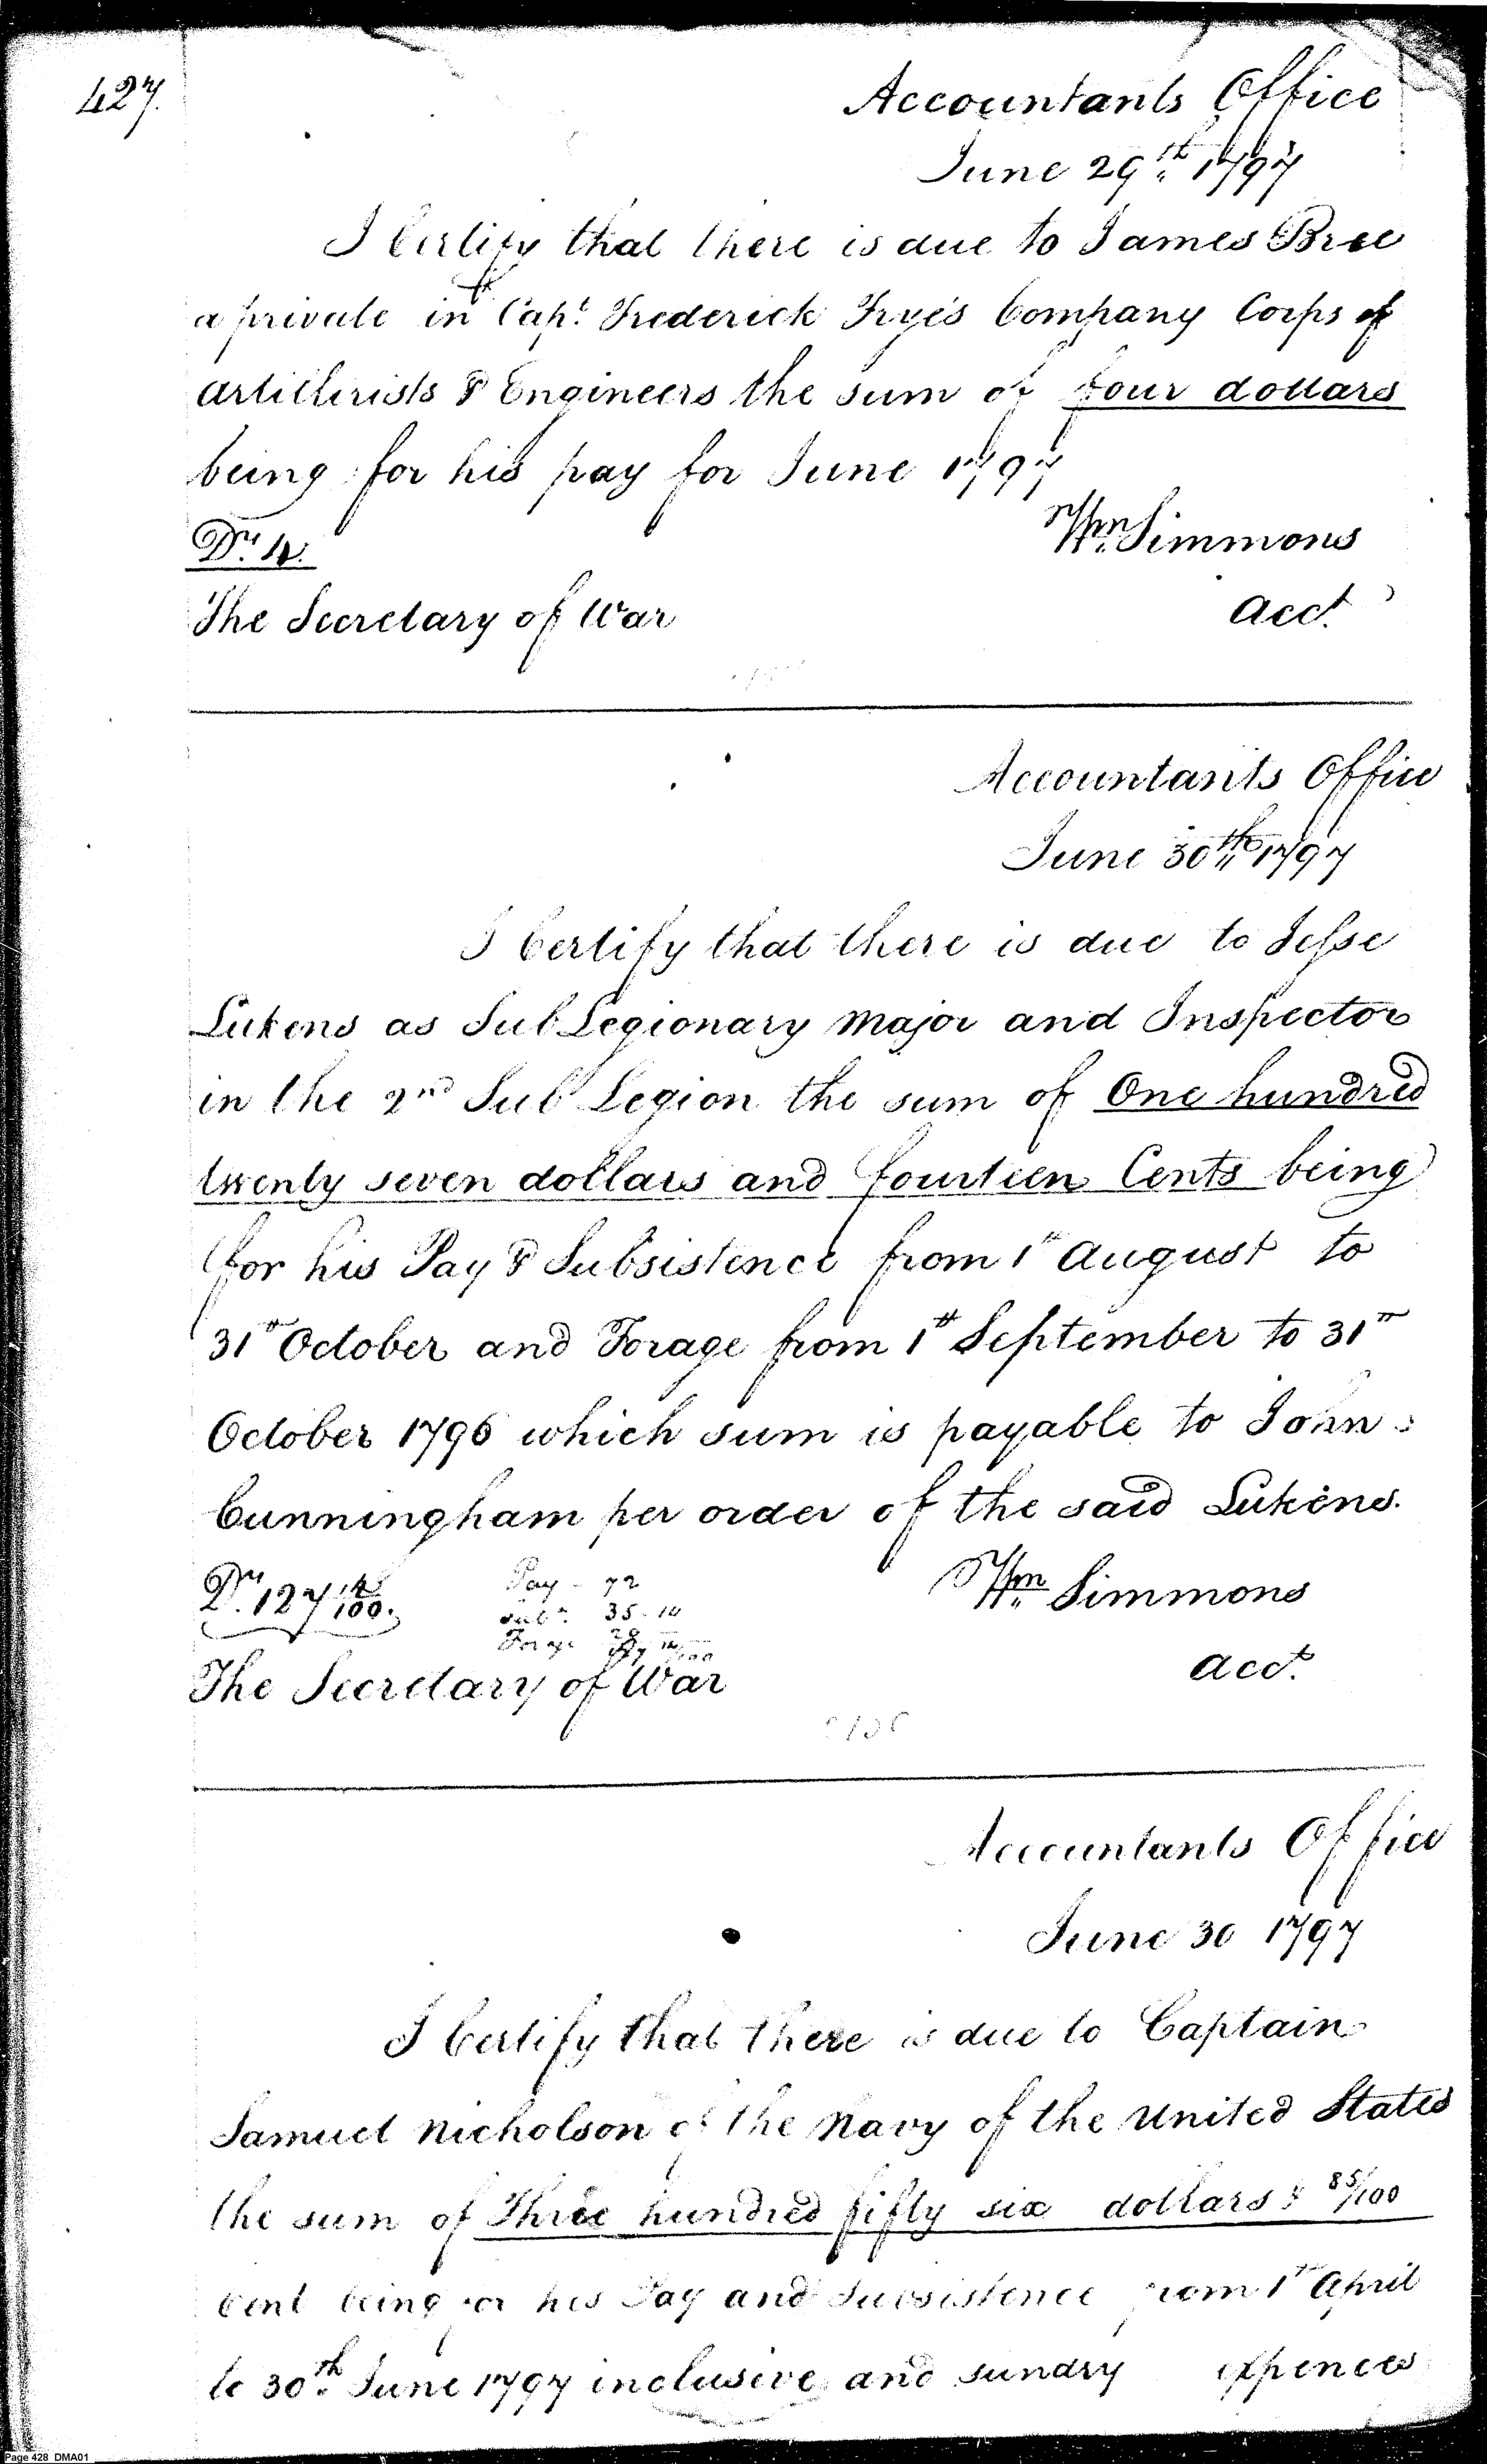 427.
Accountants Office
June 29th 1797
I Certify that there is due to James Bree
a private in Capt. Frederick Frye's Company Corps of
Artillerists & Engineers the sum of four dollars
being for his pay for June 1797
Drs. 4.
Wm. Simmons
The Secretary of War
Acct.
Accountants Office
June 30th 1797
I Certify that there is due to Jesse
Lukens as Sub Legionary Major and Inspector
in the 2nd Sub Legion the sum of One hundred
twenty seven dollars and fourteen Cents being
for his Pay & Subsistence from 1st August to
31st October and Forage from 1st September to 31st
October 1796 which sum is payable to John
Cunningham per order of the said Lukens.
Drs. 127 14/100.
Pay - 72
Subs. 35.14
Forage 20
127 14/100
Wm. Simmons
The Secretary of War
Acct.
Accountants Office
June 30 1797
I Certify that there is due to Captain
Samuel Nicholson of the Navy of the United States
the sum of Three hundred fifty six dollars & 85/100
Cent being for his Pay and Subsistence from 1st April
to 30th June 1797 inclusive and sundry expences
Page 428 DMA01